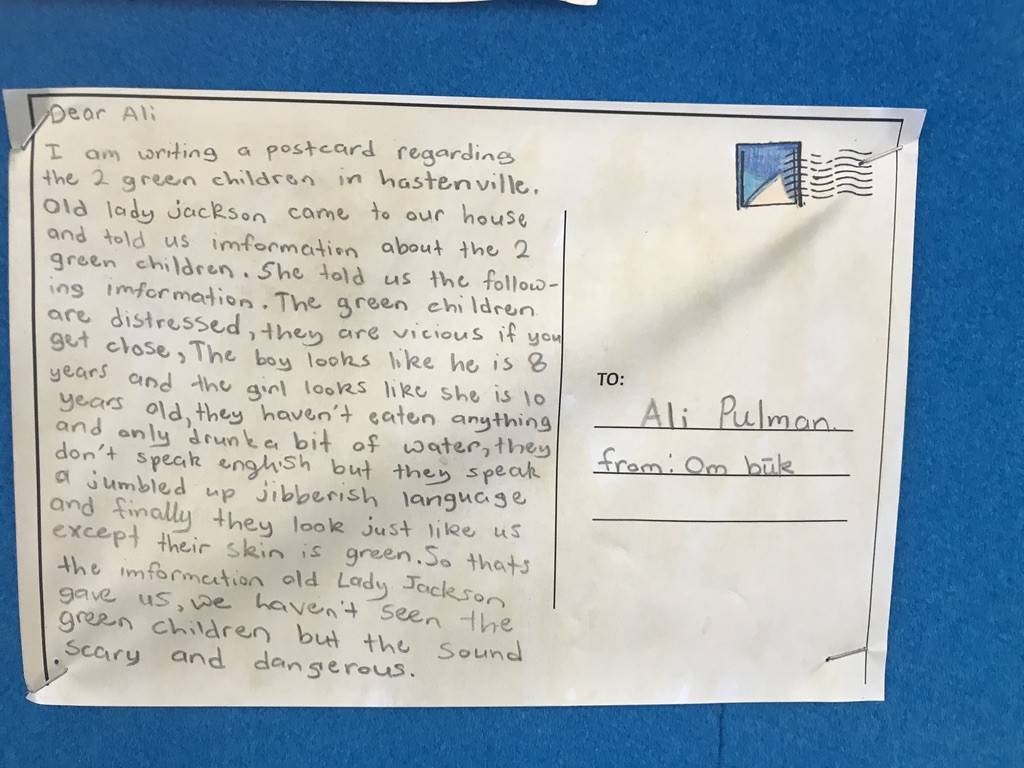 Dear Ali
I am writing a postcard regarding
the 2 green children in hastenville.
Old lady jackson came to our house
and told us imformation about the 2
green children. She told us the follow-
ing imformation. The green children
are distressed, they are vicious if you
get close, The boy looks like he is 8
years and the girl looks like she is 10
years old, they haven't eaten anything
and only drunk a bit of water, they
don't speak english but they speak
a jumbled up jibberish language
and finally they look just like us
except their skin is green. So thats
the imformation old Lady Jackson
gave us, we haven't seen the
green children but the sound
scary and dangerous.
TO:
Ali Pulman.
from: Om būk